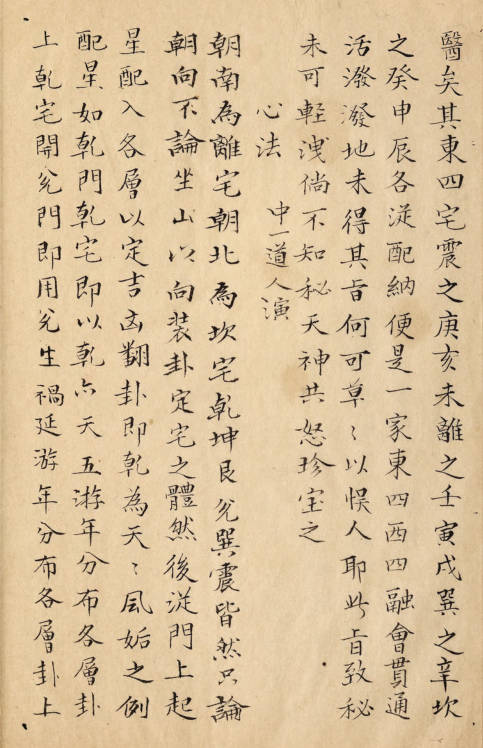 醫矣其東四宅震之庚亥未離之壬寅戌巽之辛坎
之癸申辰各從配納便是一家東四西四融會貫通
活潑潑地未得其旨何可草〻以悮人耶此旨致秘
未可輕洩倘不知秘天神共怒珍宝之
心法　中一道人演
朝南為離宅朝北為坎宅乾坤艮兌巽震皆然只論
朝向不論坐山以向装卦定宅之體然後從門上起
星配入各層以定吉凶翻卦即乾為天〻風姤之例
配星如乾門乾宅即以乾六天五游年分布各層卦
上乾宅開兌門即用兌生禍延游年分布各層卦上